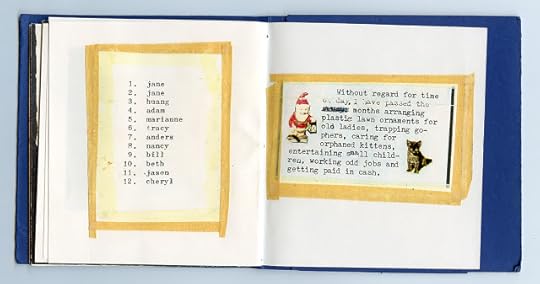 1. jane
2. jane
3. huang
4. adam
5. marianne
6. tracy
7. anders
8. nancy
9. bill
10. beth
11. jason
12. cheryl
Without regard for time
of day, I have passed the
months arranging
plastic lawn ornaments for
old ladies, trapping go-
phers, caring for
orphaned kittens,
entertaining small child-
ren, working odd jobs and
getting paid in cash.